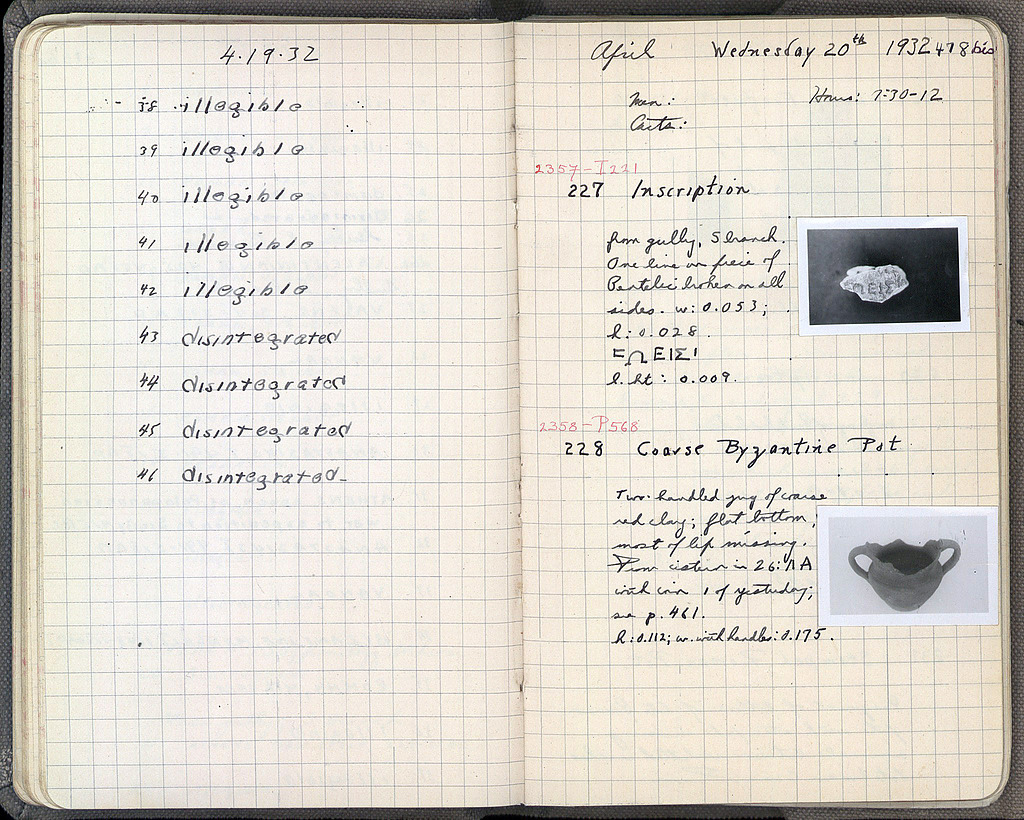 4.19.32
38 illegible
39 illegible
40 illegible
41 illegible
42 illegible
43 disintegrated
44 disintegrated
45 disintegrated
46 disintegrated
April Wednesday 20th 1932 478 bis
Men: Hours: 7:30-12
Carts:
2357-I221
227 Inscription
from gully, S branch.
One line on piece of
Pentelic broken on all
sides. w: 0.053;
h: 0.028.
ΩΕΙΣΙ
l. ht: 0.009.
2358-P568
228 Coarse Byzantine Pot
Two-handled jug of coarse
red clay; flat bottom,
most of lip missing.
From cistern in 26:/ΙΑ
with coin 1 of yesterday;
see p. 461.
h: 0.112; w. with handles: 0.175.